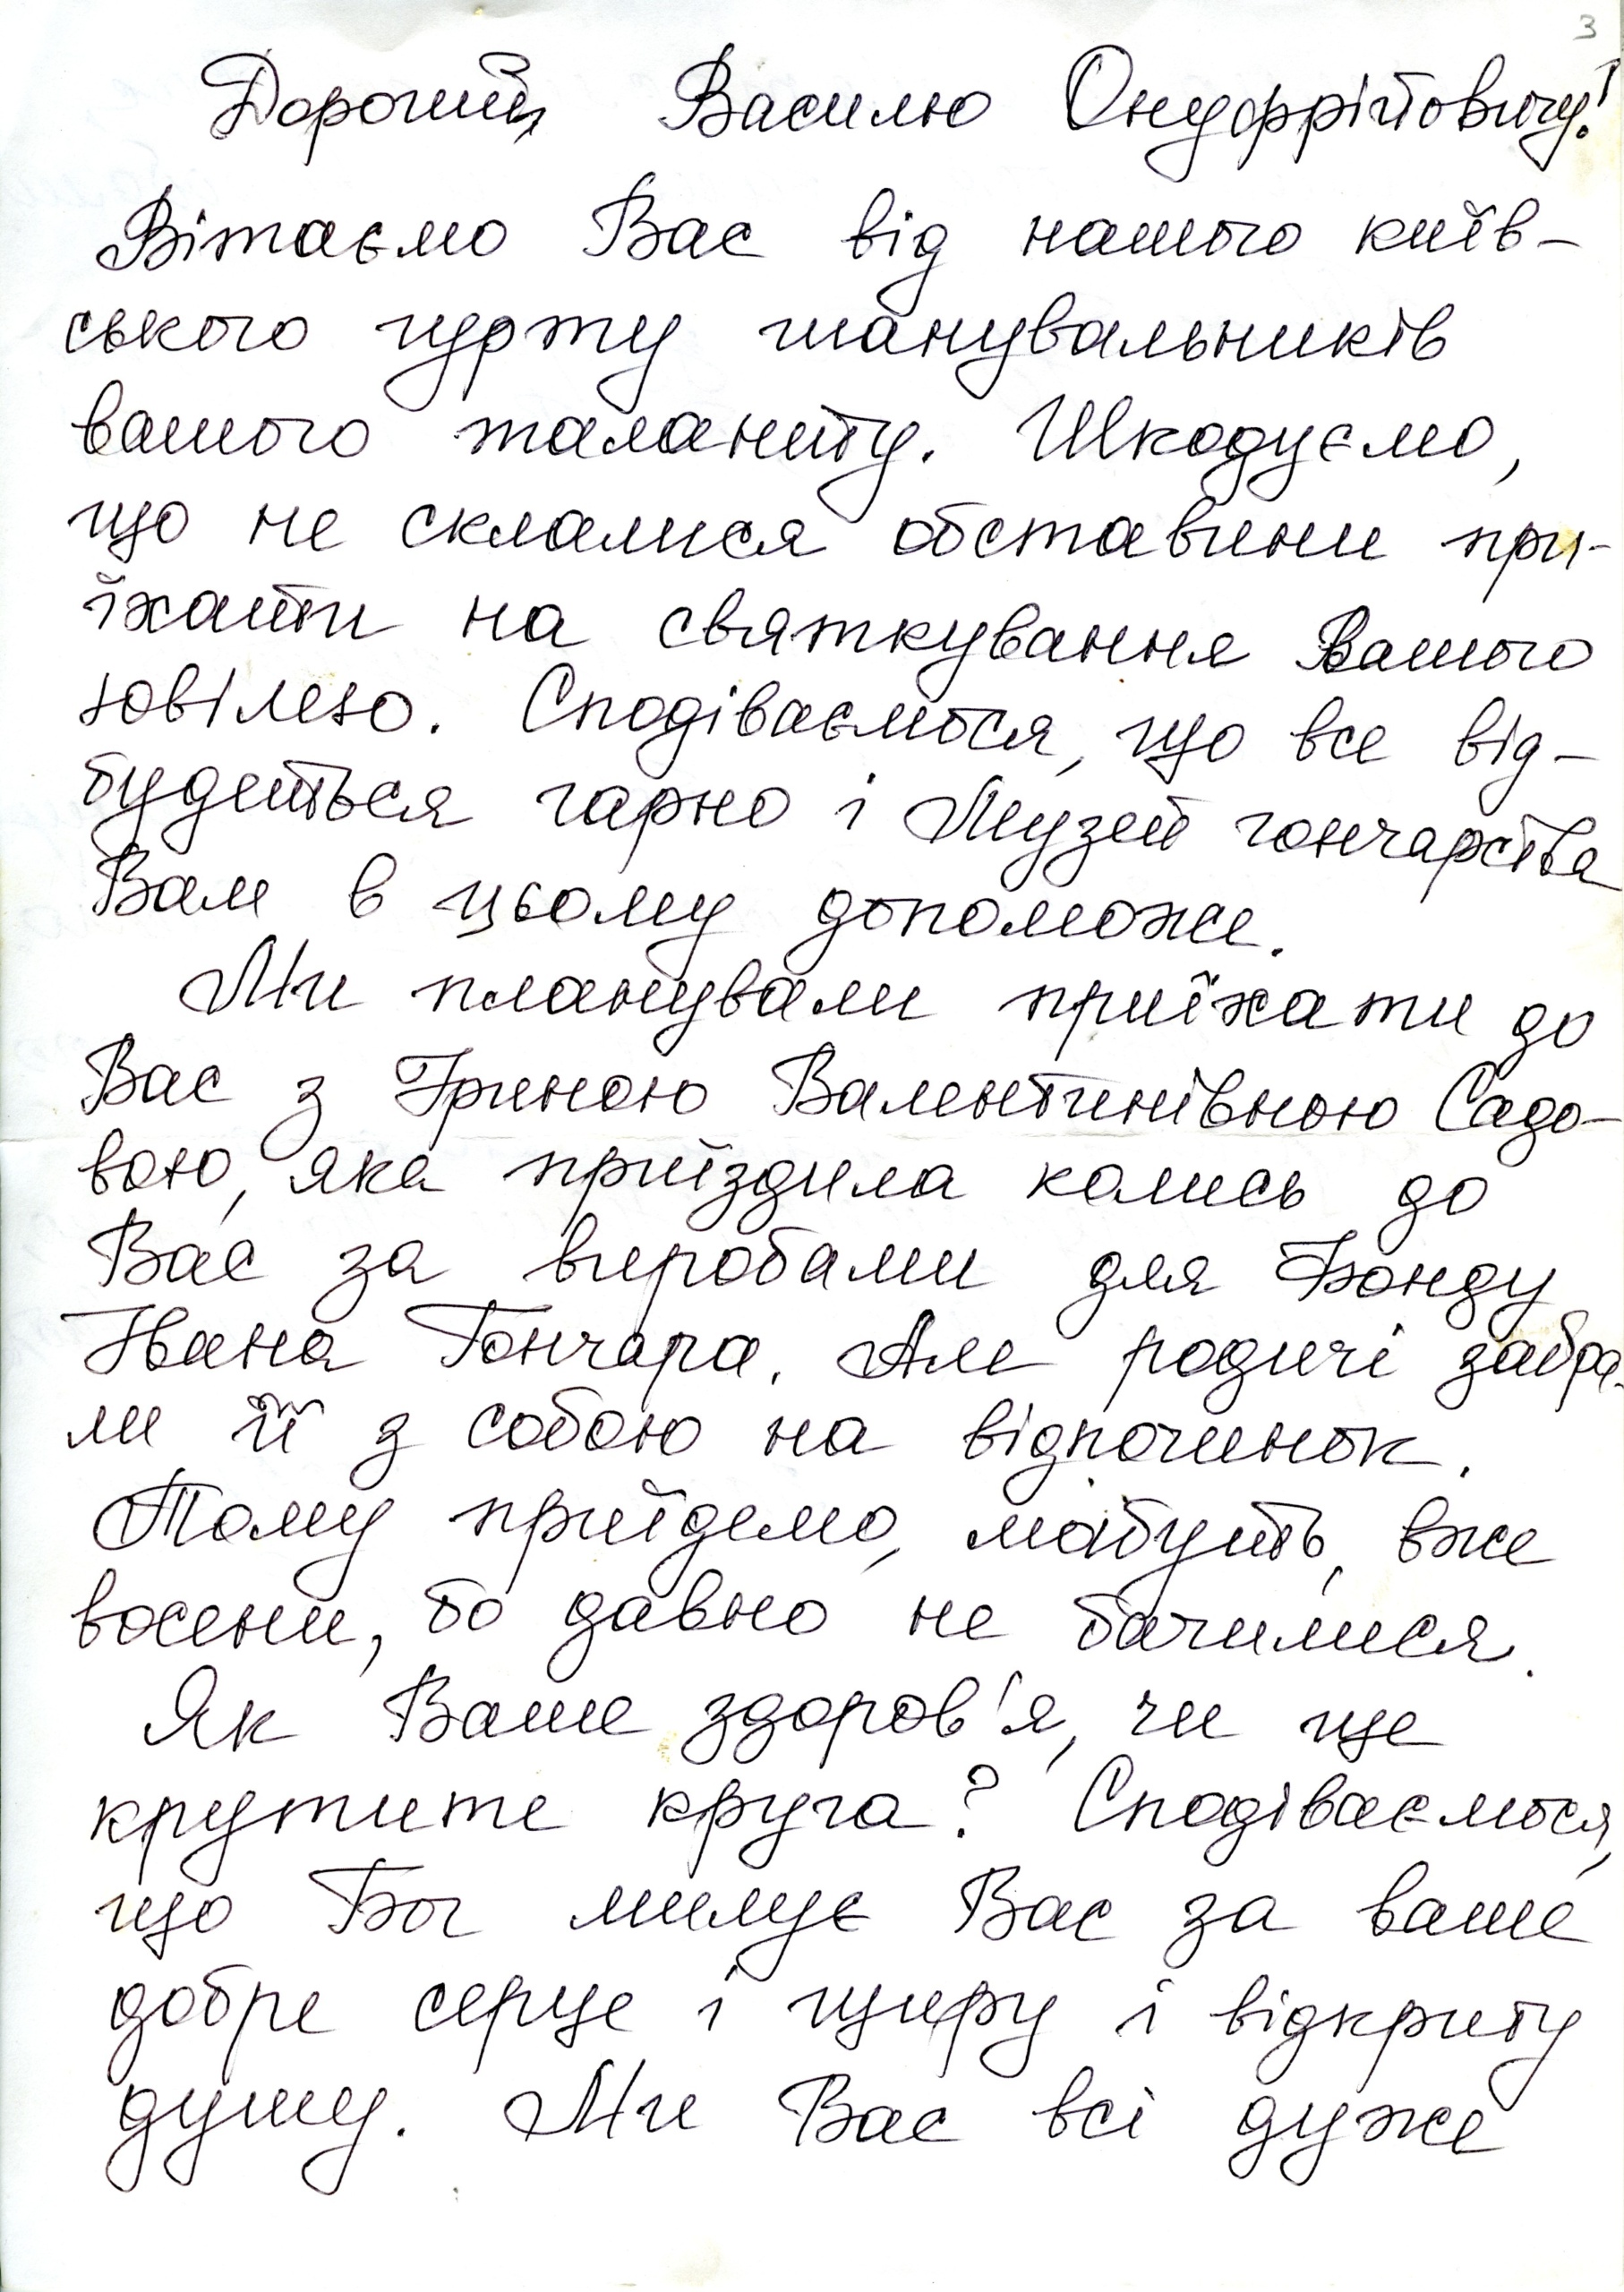 3
Дорогий Василю Онуфрійовичу!
Вітаємо Вас від нашого київ-
ського гурту шанувальників
вашого таланту. Шкодуємо,
що не склалися обставини при-
їхати на святкування Вашого
ювілею. Сподіваємося, що все від-
будеться гарно і Музей гончарства
Вам в цьому допоможе.
Ми планували приїхати до
Вас з Іриною Валентинівною Садо-
вою, яка приїздила колись до
Вас за виробами для Фонду
Івана Гончара. Але родичі забра-
ли її з собою на відпочинок.
Тому приїдемо, мабуть, вже
восени, бо давно не бачилися.
Як Ваше здоров'я, чи ще
крутите круга? Сподіваємося,
що Бог милує Вас за ваше
добре серце і щиру і відкриту
душу. Ми Вас всі дуже